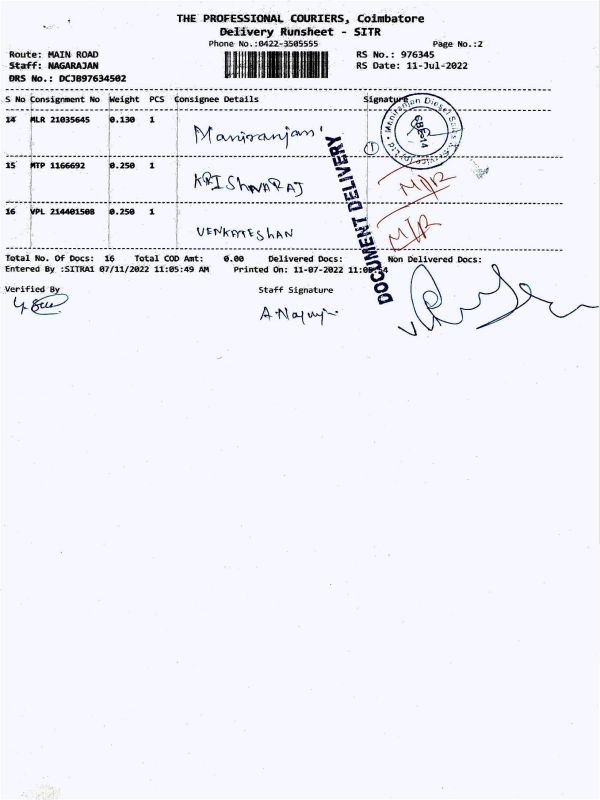 THE PROFESSIONAL COURIERS, Coimbatore
Delivery Runsheet - SITR
Phone No.:0422-3505555 Page No.:2
Route: MAIN ROAD RS No.: 976345
Staff: NAGARAJAN RS Date: 11-Jul-2022
DRS No.: DCJB97634502
S No Consignment No Weight PCS Consignee Details Signature
14 MLR 21035645 0.130 1 Maniranjan
Maniranjan Diesel Sales & Service (p) Ltd
CBE-14
1
15 MTP 1166692 0.250 1 KRISHNARAJ M/R
16 VPL 214401508 0.250 1 VENKATESHAN M/R
DOCUMENT DELIVERY
Total No. Of Docs: 16 Total COD Amt: 0.00 Delivered Docs: Non Delivered Docs:
Entered By :SITRA1 07/11/2022 11:05:49 AM Printed On: 11-07-2022 11:05:54
Verified By Staff Signature